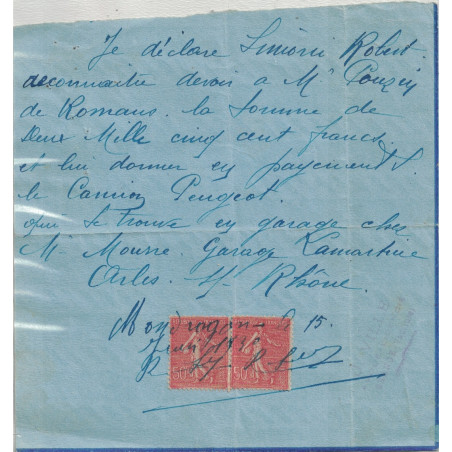 Je déclare Simioni Robert
reconnaitre devoir a Mr Pouzin
de Romans. la somme de
Deux Mille cinq cent francs
et lui donner en payement
le Camion Peugeot.
qui se trouve en garage chez
M. Mourre. Garage Lamartine
Arles s/ Rhône.
Mondragon le 15.
50 50